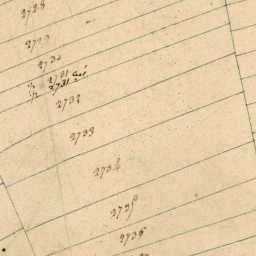 2728
2729
2730
2731
2731
2732
2733
2734
2735
2736